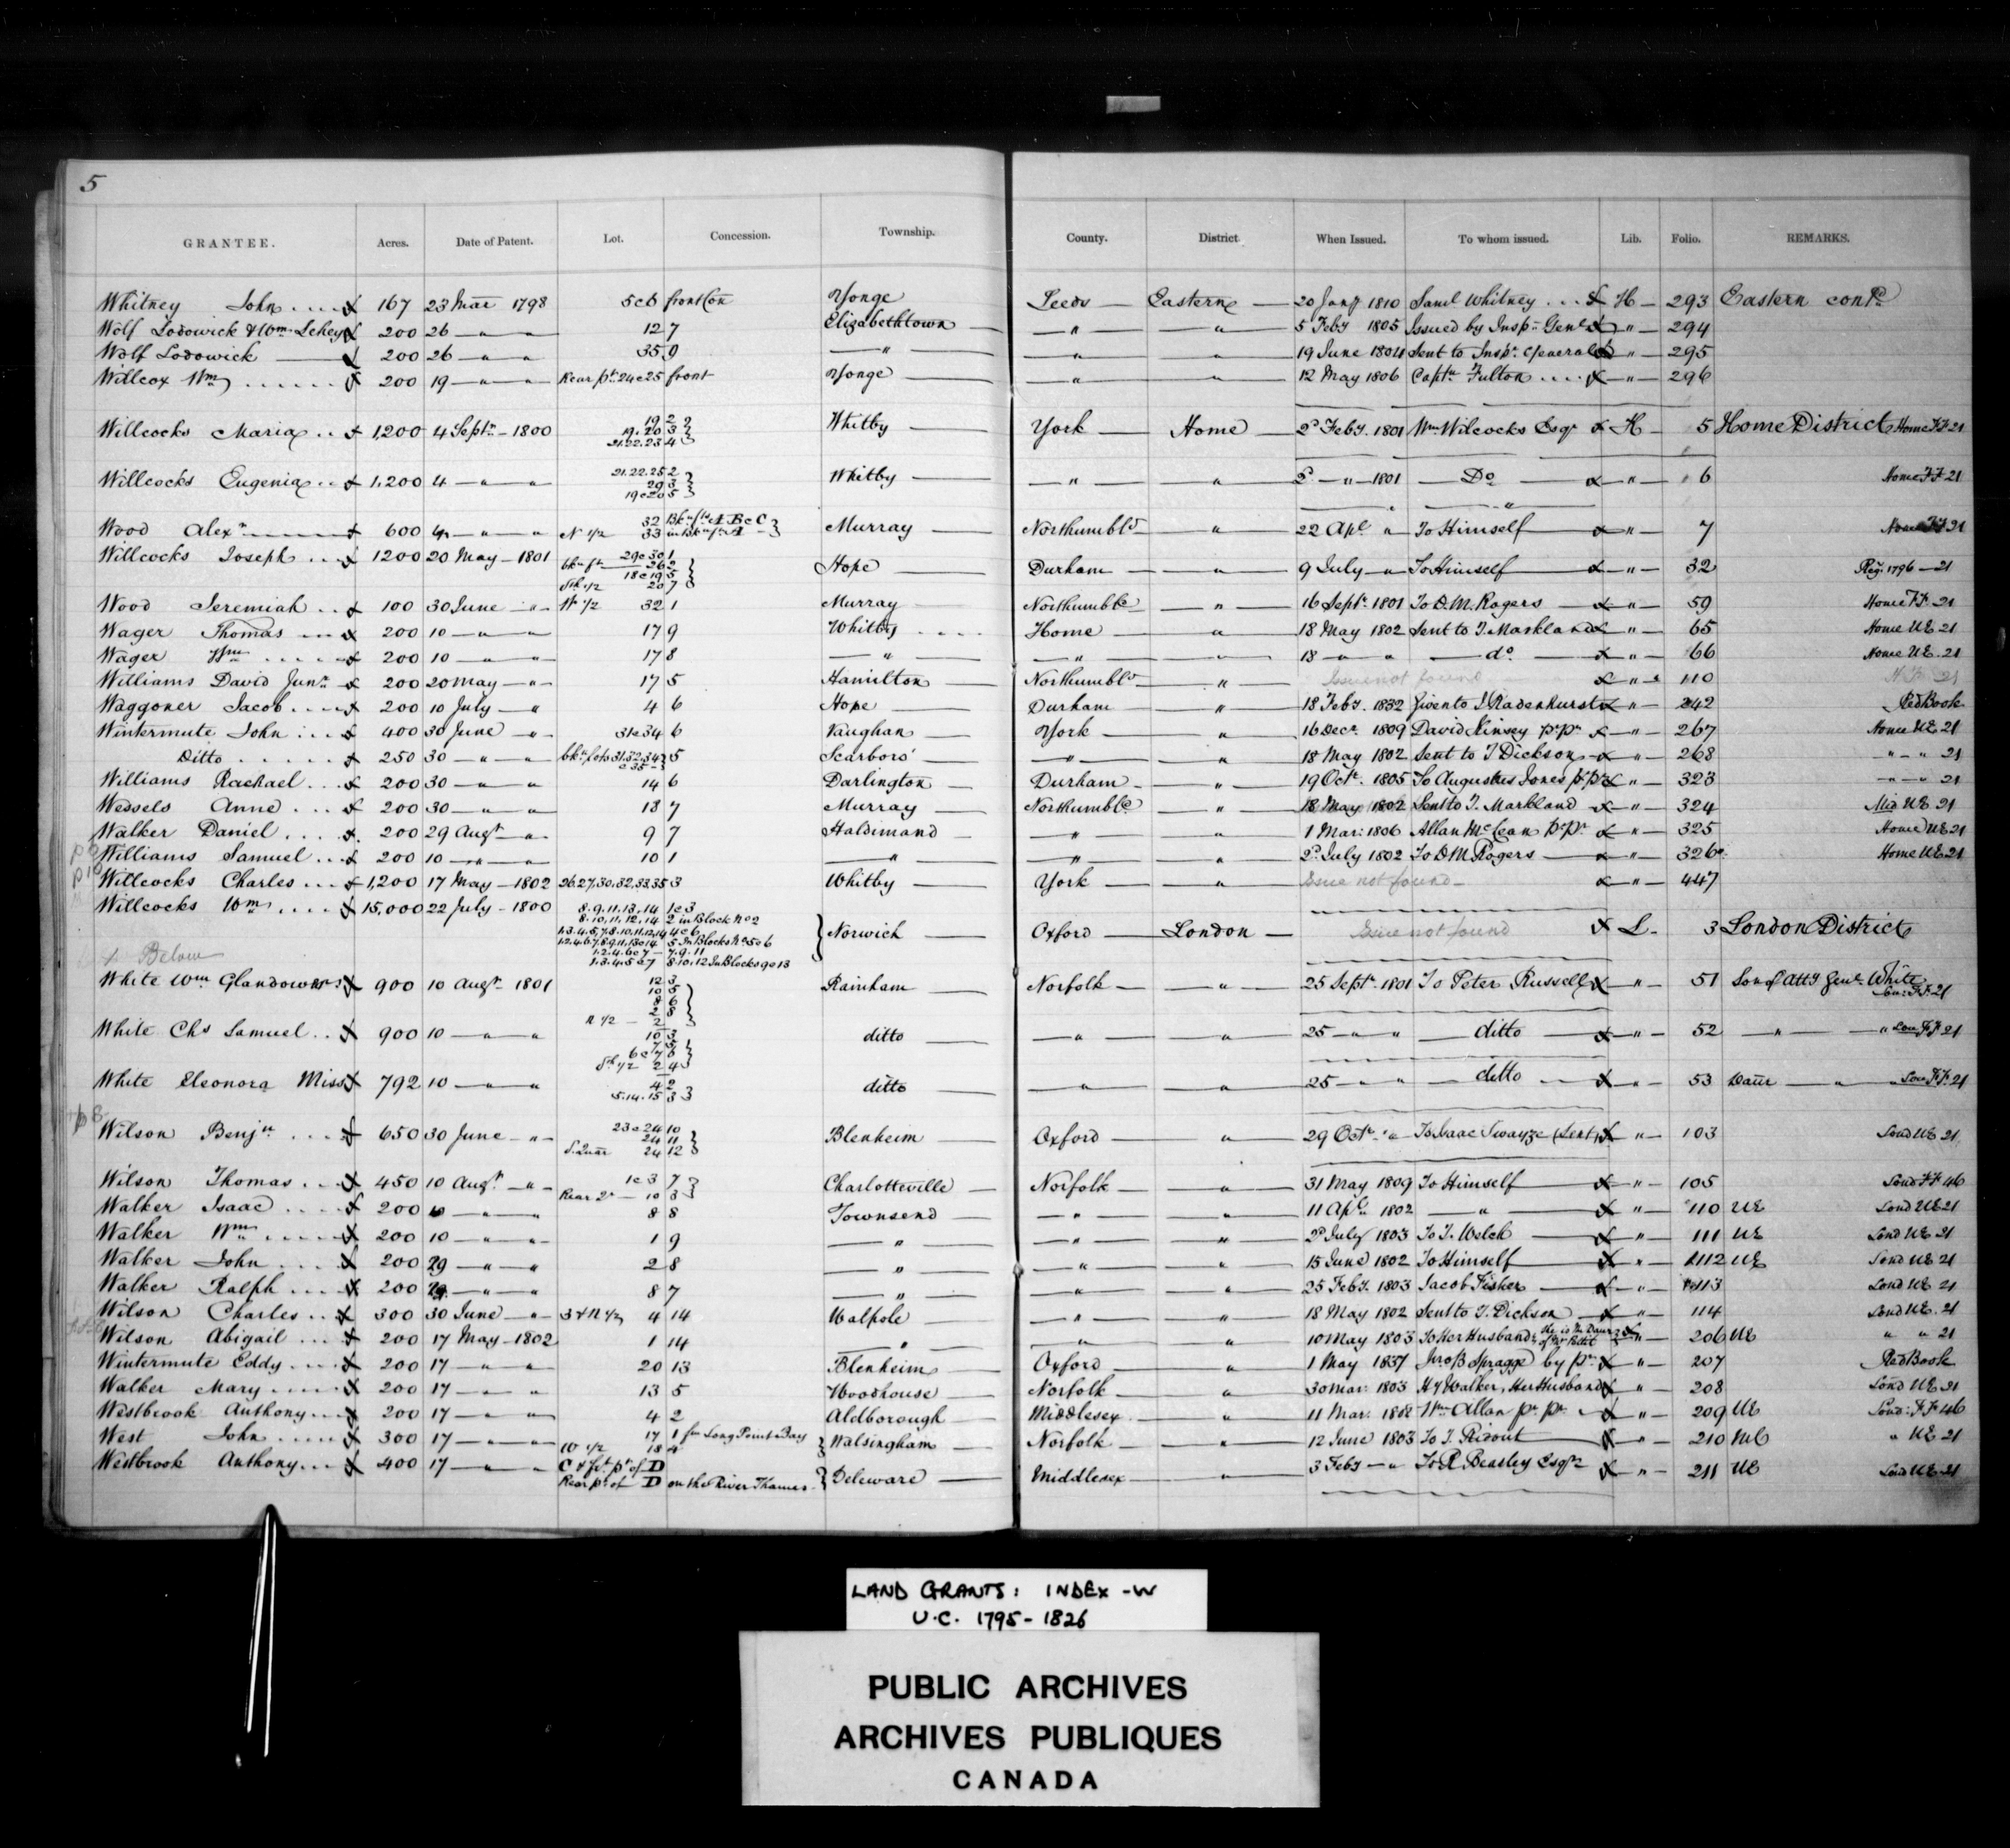 5
GRANTEE. Acres. Date of Patent. Lot. Concession. Township. County. District When Issued. To whom issued. Lib. Folio. REMARKS.
Whitney John .... 167 23 Mar 1798 5 & 6 front Con Yonge Leeds Eastern 20 Jany 1810 Saml Whitney ... H 293 Eastern conc
Wolf Lodowick & Wm Lehey 200 26 " " 12 7 Elizabethtown " " 5 Feby 1805 Issued by Insp. Genl " 294
Wolf Lodowick 200 26 " " 35 9 " " " 19 June 1804 Sent to Inspr General " 295
Willcox Wm ...... 200 19 " " Rear pt 24 & 25 front Yonge " " 12 May 1806 Captn Fulton .... " 296
Willcocks Maria .. 1,200 4 Septr 1800 19 2 Whitby York Home 2d Feby. 1801 Wm Wilcocks Esqr K 5 Home District Home FF 21
19.20 3
21.22.23 4
Willcocks Eugenia .. 1,200 4 " " 21.22.25 2 Whitby " " 2d " 1801 Do " 6 Home FF 21
29 3
19 & 20 5
Wood Alexr 600 4 " " 32 Bkn fts A B & C Murray Northumbld " 22 Apl " To Himself " 7 Home FF 21
N 1/2 33 in Bkn ft A
Willcocks Joseph ... 1200 20 May 1801 29 & 30 1 Hope Durham " 9 July " To Himself " 32 Reg. 1796 21
bkn ft 26 2
18 & 19 5
Sh 1/2 20 7
Wood Jeremiah .. 100 30 June " W 1/2 32 1 Murray Northumbld " 16 Septr. 1801 To D. M. Rogers " 59 Home FF 21
Wager Thomas ... 200 10 " " 17 9 Whitby .... Home " 18 May 1802 Sent to T. Markland " 65 Home UE 21
Wager Wm ..... 200 10 " " 17 8 " " " 18 " " do " 66 Home UE 21
Williams David Junr 200 20 May " 17 5 Hamilton Northumbld " Issue not found " 110
Waggoner Jacob .... 200 10 July " 4 6 Hope Durham " 18 Feby. 1832 Given to T. Radenhurst " 242 Red Book
Wintermute John ... 400 30 June " 31 & 34 6 Vaughan York " 16 Decr. 1809 David Kinsey pr pr " 267 Home UE 21
Ditto ...... 250 30 " " bkn Lots 31.32.34 & 35 5 Scarboro' " " 18 May 1802 Sent to T Dickson " 268 " " 21
Williams Rachael ... 200 30 " " 14 6 Darlington Durham " 19 Octr. 1805 To Augustus Jones pr pr " 323 " " 21
Wessels Anne ... 200 30 " " 13 7 Murray Northumbld " 18 May 1802 Sent to T. Markland " 324 Mid UE 21
Walker Daniel .... 200 29 Augt " 9 7 Haldimand " " 1 Mar: 1806 Allan McLean pr pr " 325 Home UE 21
Williams Samuel ... 200 10 " " 10 1 " " " 2d July 1802 To D M Rogers " 326 Home UE 21
Willcocks Charles ... 1,200 17 May 1802 26.27.30.32.33.35 3 Whitby York " Issue not found " 447
Willcocks Wm .... 15,000 22 July 1800 8.9.11.13.14 1 & 3 Norwich Oxford London Issue not found L 3 London District
8.10.11.12.14 2 in Block No 2
1.3.4.5.7.8.10.11.12.14 4 & 6
1.2.4.6.7.8.9.11.13 & 14 5 In Blocks No 5 & 6
1.2.4.6 & 7 7.9.11
Below 1.3.4.5 & 7 8.10.12 In Blocks 9 & 13
White Wm Glandower 900 10 Augt 1801 12 3 Rainham Norfolk " 25 Septr. 1801 To Peter Russell " 51 Son of Atty Genl White Lon: FF. 21
10 5
8 6
2 8
N 1/2 2
White Chs Samuel .. 900 10 " " 10 3 ditto " " 25 " " ditto " 52 " " Lon FF 21
6 & 7 6
Sh 1/2 2 4
White Eleonora Miss 792 10 " " 4 2 ditto " " 25 " " ditto " 53 Daur " " Lon FF. 21
5.14.15 3
p 8
Wilson Benjn .... 650 30 June " 23 & 24 10 Blenheim Oxford " 29 Octr " To Isaac Swayze (Sent) " 103 Lond UE 21
24 11
S. Quar 24 12
Wilson Thomas ... 450 10 Augt " 1 & 3 7 Charlotteville Norfolk " 31 May 1809 To Himself " 105 Lond FF 46
Rear 2r 10 3
Walker Isaac .... 200 10 " " 8 8 Townsend " " 11 Apl. 1802 " " 110 UE Lond UE 21
Walker Wm ..... 200 10 " " 1 9 " " " 2d July 1803 To T. Welch " 111 UE Lond UE 21
Walker John .... 200 29 " " 2 8 " " " 15 June 1802 To Himself " 112 UE Lond UE 21
Walker Ralph .... 200 29 " " 8 7 " " " 25 Feby. 1803 Jacob Fisher " 113 Lond UE 21
Wilson Charles .. 300 30 June " 3 & N 1/2 4 14 Walpole " " 18 May 1802 Sent to T. Dickson " 114 Lond UE. 21
Wilson Abigail ... 200 17 May 1802 1 14 " " " 10 May 1803 To Her Husband " 206 UE " " 21
Wintermute Eddy ... 200 17 " " 20 13 Blenheim Oxford " 1 May 1837 Spragge by pr " 207 Red Book
Walker Mary ..... 200 17 " " 13 5 Woodhouse Norfolk " 30 Mar: 1803 Hy Walker, Her Husband " 208 Lond UE 21
Westbrook Anthony ... 200 17 " " 4 2 Aldborough Middlesex " 11 Mar. 1812 Wm Allan pr pr " 209 UE Lond: FF 46
West John ..... 300 17 " " 17 1 fm Long Point Bay Walsingham Norfolk " 12 June 1803 To T. Ridout " 210 MC " UE 21
W 1/2 18 4
Westbrook Anthony ... 400 17 " " C & ft pt of D Deleware Middlesex " 3 Feby " To R Beasley Esqr " 211 UE Lond UE 21
Rear pt of D on the River Thames
LAND GRANTS: INDEX -W
U.C. 1795-1826
PUBLIC ARCHIVES
ARCHIVES PUBLIQUES
CANADA